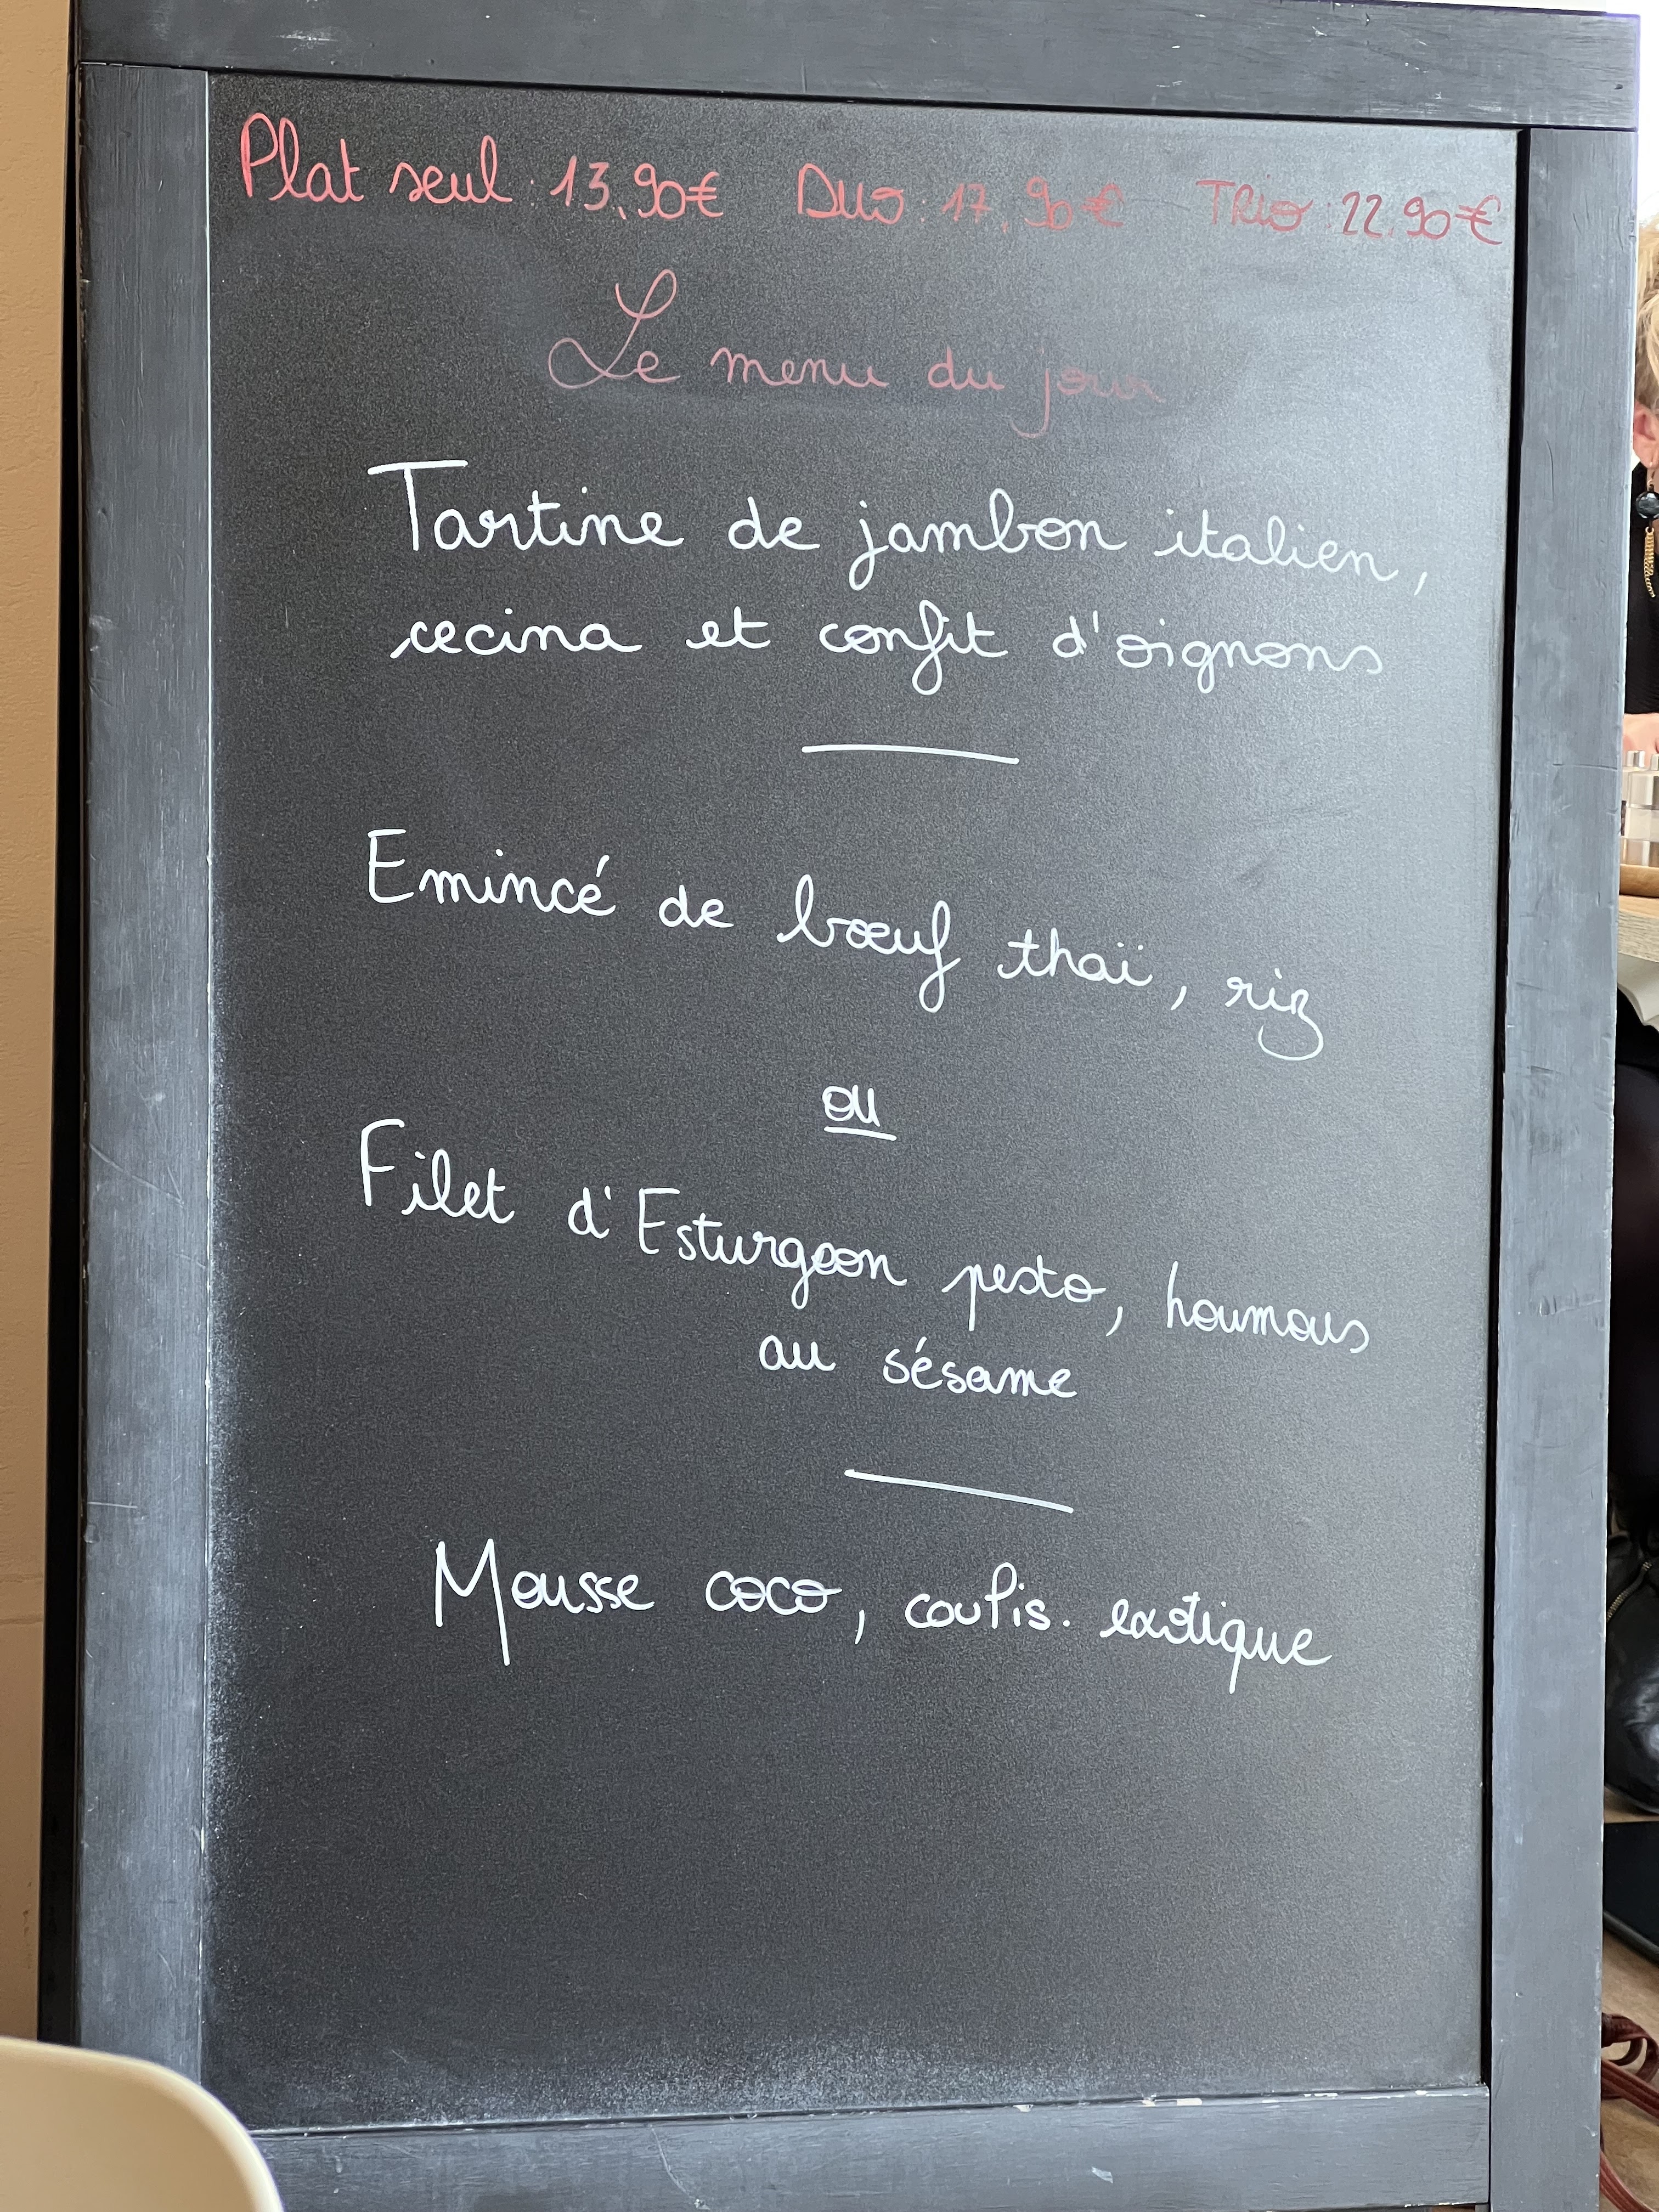 Plat seul : 13,90€ Duo : 17,90€ Trio : 22.90€
Le menu du jour
Tartine de jambon italien,
cecina et confit d'oignons
Emincé de bœuf thaï, riz
ou
Filet d'Esturgeon pesto, houmous
au sésame
Mousse coco, coulis. exotique